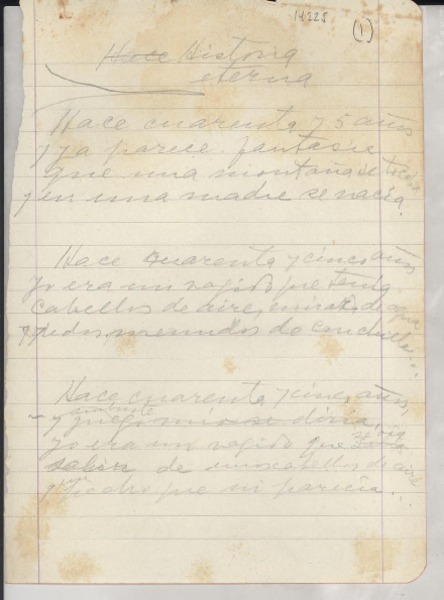 14225
(1)
Hace Historia
eterna
Hace cuarenta y 5 años
y ya parece fantasía
que una montaña se
y en una madre se nacía.
Hace cuarenta y cinco años
yo era un vagido que tenía
cabellos de aire, mirada de agua
y dedos menudos de
Hace cuarenta y cinco años,
y
yo era un vagido que
de unos cabellos de aire
que ni parecía...